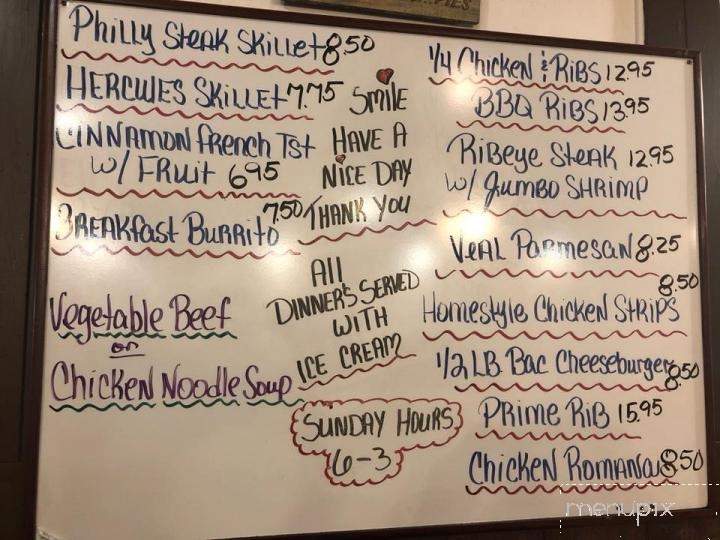 Philly Steak Skillet 8.50
HERCULES SKILLET 7.75
CINNAMON French Tst
w/ FRUIT 6.95
BREAKfast BURRITO 7.50
Vegetable Beef
or
Chicken Noodle Soup
SMILE
HAVE A
NICE DAY
THANK YOU
All
DINNER'S SERVED
WITH
ICE CREAM
SUNDAY HOURS
6-3
1/4 Chicken & RIBS 12.95
BBQ RIBS 13.95
Ribeye Steak 12.95
w/ Jumbo SHRIMP
Veal Parmesan 8.25
8.50
Homestyle Chicken Strips
1/2 LB. Bac Cheeseburger 8.50
PRIME RIB 15.95
Chicken Romano 8.50
menupix